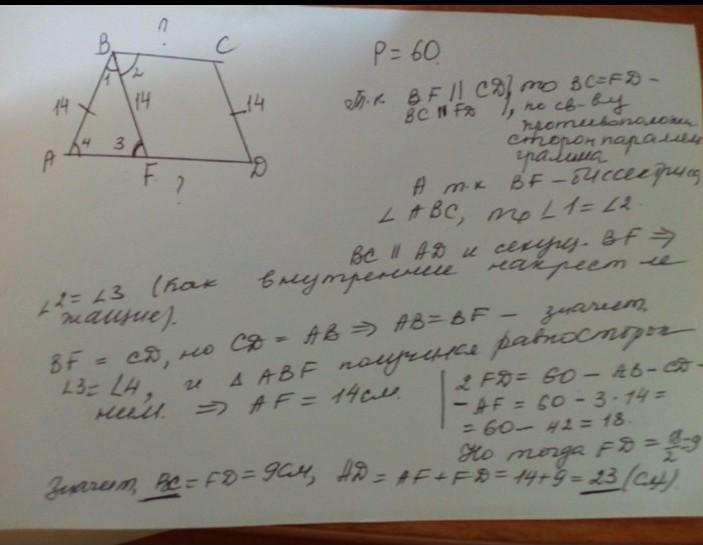 ?
B C
1 2
14 14 14
A 4 3 F D
?
P = 60.
Т.к BF || CD, то BC=FD -
BC || FD , по св-ву
противополож
сторон паралле
грамма
А т.к BF - биссектриса
∠ ABC, то ∠1=∠2.
BC || AD и секущ. BF ⇒
∠2=∠3 (как внутренние накрест ле
жащие).
BF = CD, но CD = AB ⇒ AB=BF - значит,
∠3=∠4, и △ ABF получился равносторон
ним. ⇒ AF = 14см.
2 FD = 60 - AB - CD -
- AF = 60 - 3·14 =
= 60 - 42 = 18.
Но тогда FD = 18/2 = 9
Значит, BC = FD = 9см, AD = AF + FD = 14+9 = 23 (см).